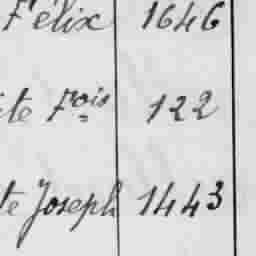 Félix 1646
ite Fois 122
te Joseph 1443